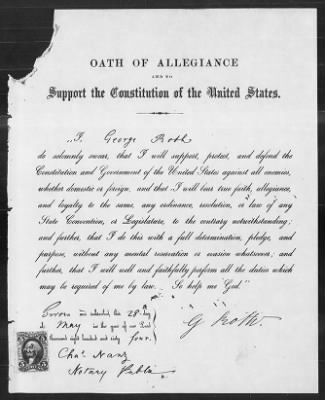 OATH OF ALLEGIANCE
AND TO
Support the Constitution of the United States.
"I, George Roth
do solemnly swear, that I will support, protect, and defend the
Constitution and Government of the United States against all enemies,
whether domestic or foreign, and that I will bear true faith, allegiance,
and loyalty to the same, any ordinance, resolution, or law of any
State Convention, or Legislature, to the contrary notwithstanding;
and further, that I do this with a full determination, pledge, and
purpose, without any mental reservation or evasion whatsoever; and
further, that I will well and faithfully perform all the duties which
may be required of me by law. So help me God."
Sworn and subscribed this 28th day
of May in the year of our Lord
thousand eight hundred and sixty four.
G Roth.
Chas. Nanz
Notary Public